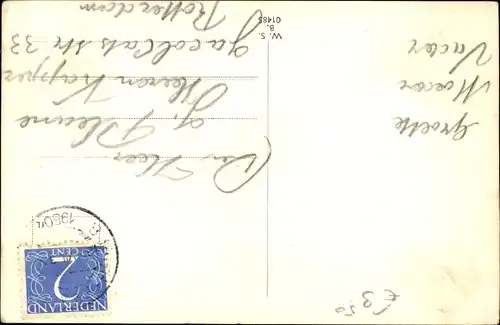 Groette
Moeder
Vader
W. S.
B.
01485
Den Heer
J. Pleune
Heeren Kapper
Jacob Cats str 33
Rotterdam
NEDERLAND
2
CENT
1950
€ 3.50